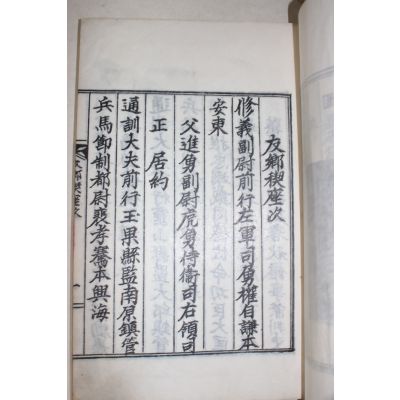 友鄉稧座次
修義副尉前行左軍司勇權自謙本
安東
父進勇副尉虎勇侍衛司右領司
正 居約
通訓大夫前行玉果縣監南原鎭管
兵馬節制都尉裵孝騫本興海